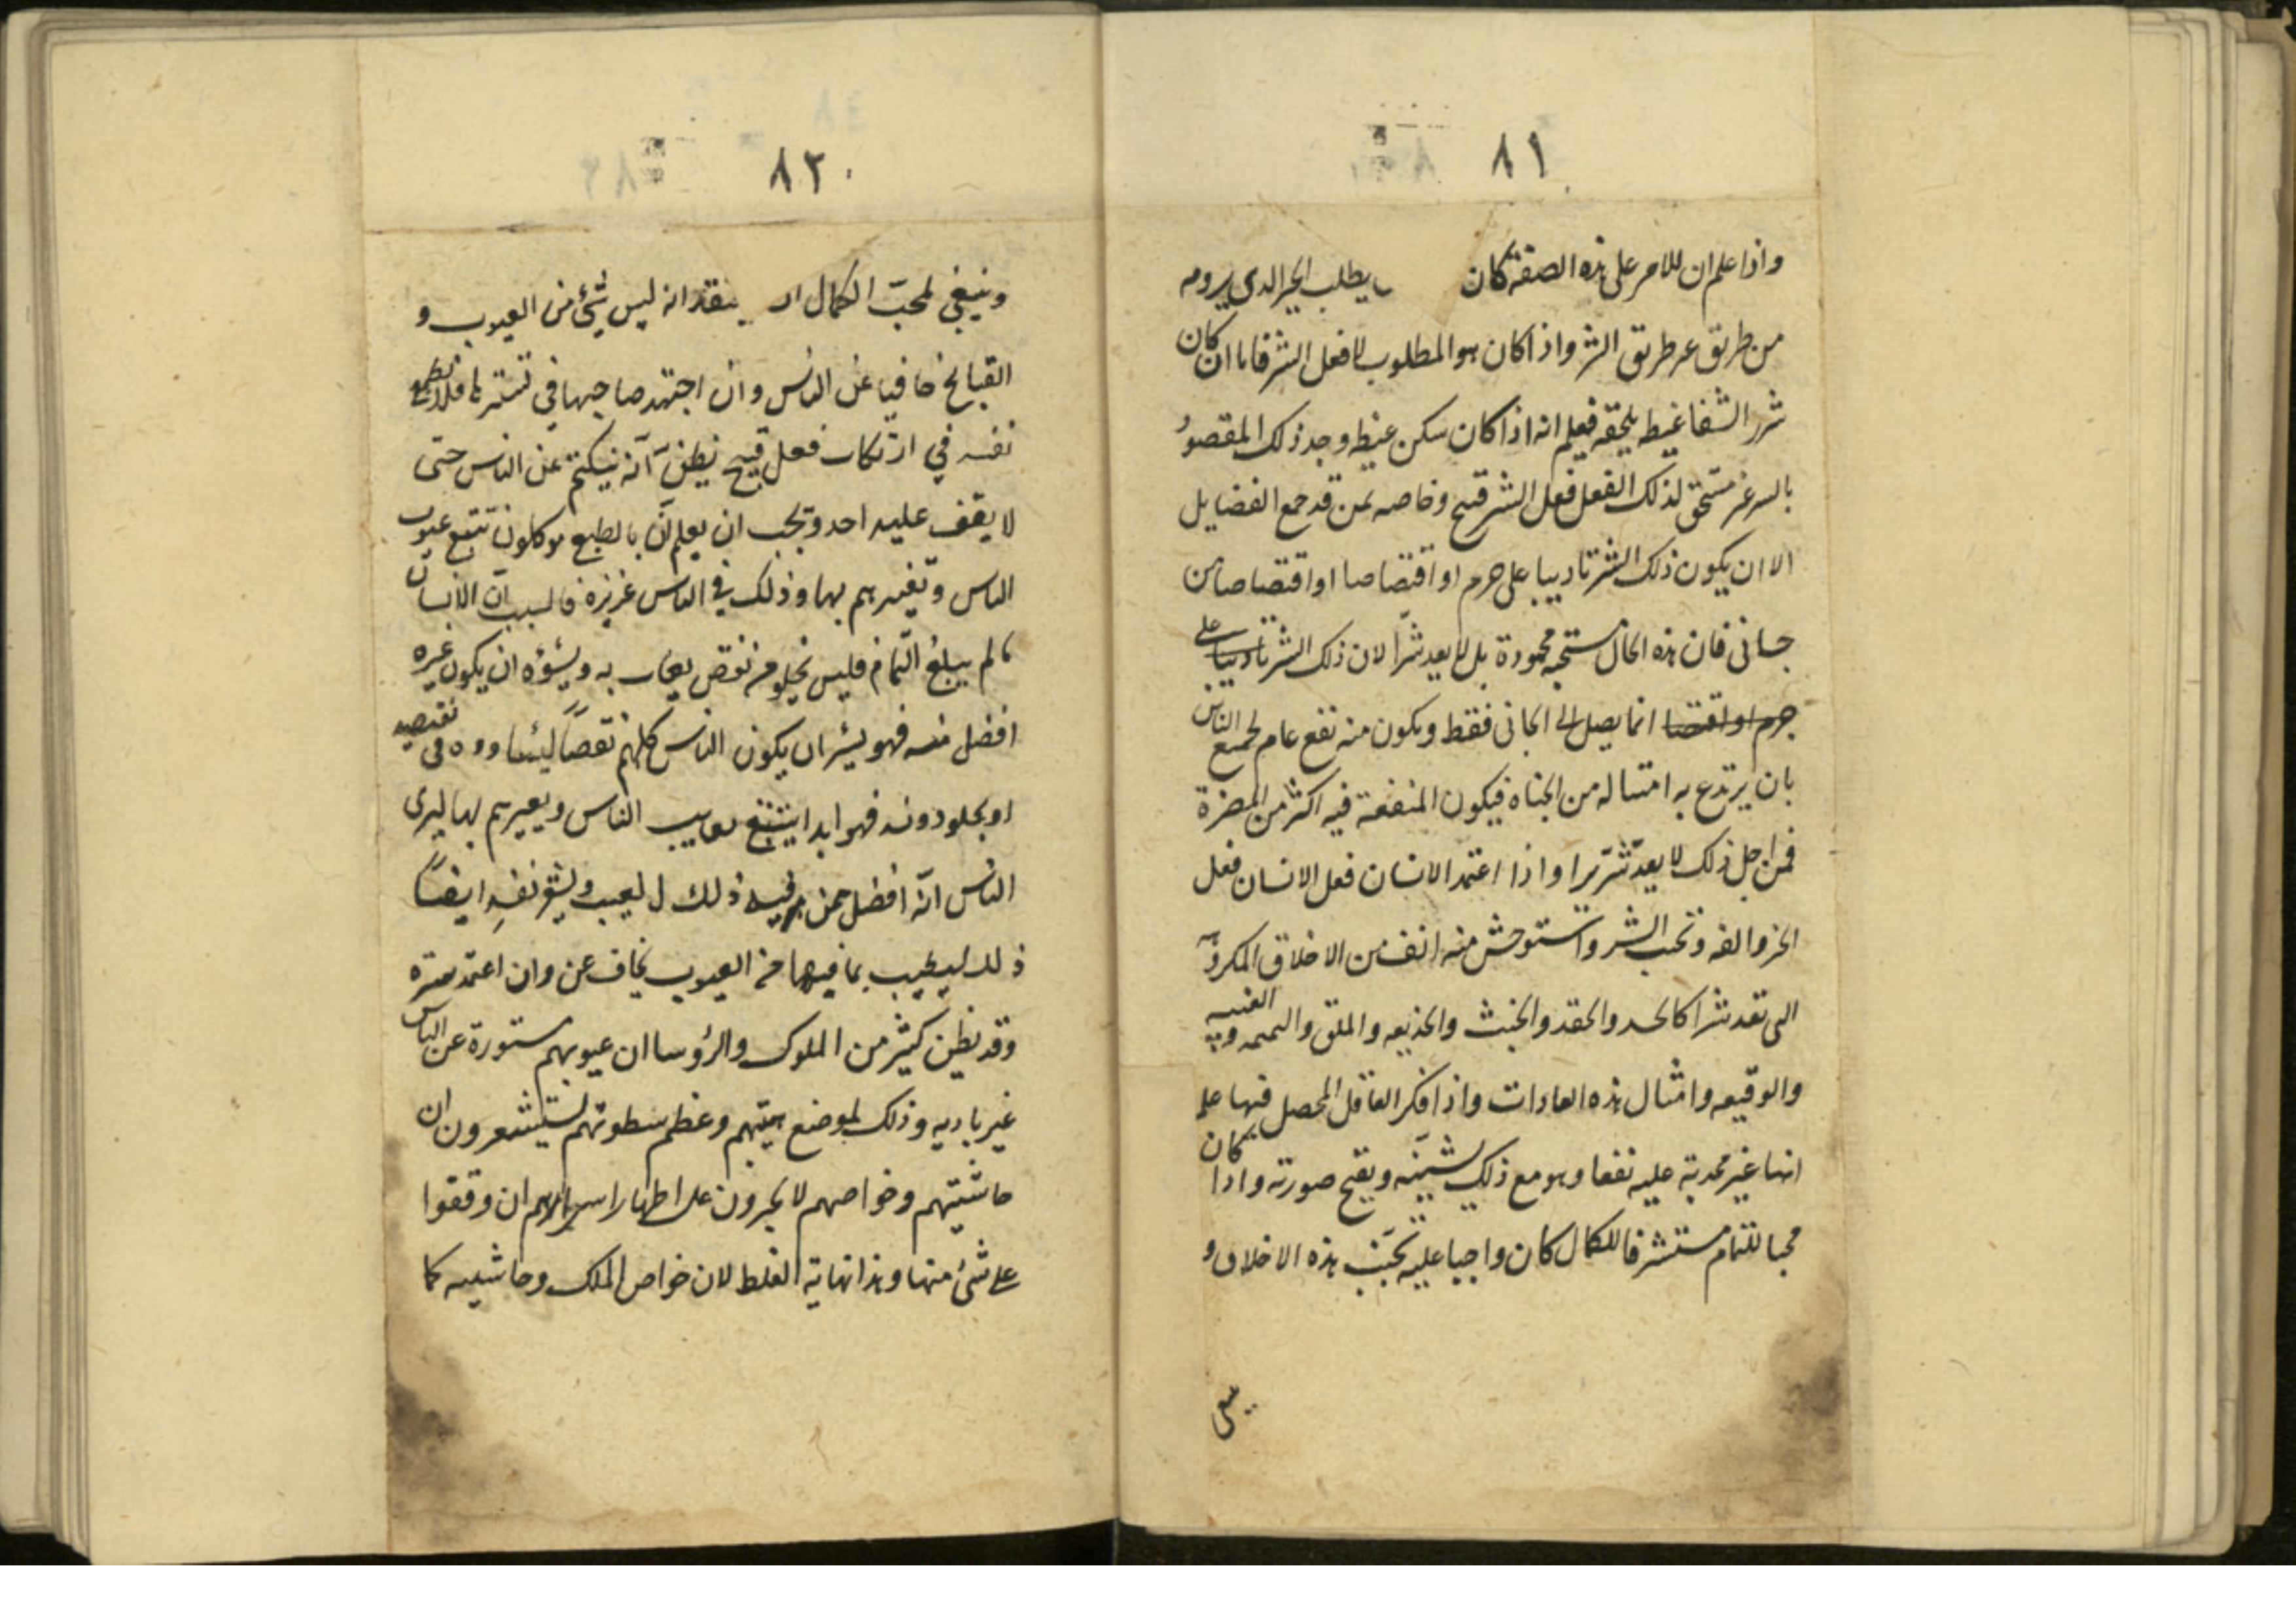 ٨١
واذا علم ان للامر على هذه الصفة كان يطلب الخير الدى يرومه
من طريق غير طريق الشر واذا كان هو المطلوب لا فعل الشر فاما ان كان
شرر الشفا غيظ يلحقه فيعلم انه اذا كان سكن غيظه وجد ذلك المقصود
بالسر غير مستحق لذلك الفعل فعل الشر قبيح وخاصه بمن قد جمع الفضايل
الا ان يكون ذلك الشر تاديبا على جرم او اقتصاصا او اقتصاصا من
جانى فان هذه الحال مستحبه محمودة بل لا يعد شرّا لان ذلك الشر تاديبا على
جرم او اقتصا انما يصل الى الجانى فقط ويكون منه نفع عام لجميع الناس
بان يرتدع به امثاله من الجناه فيكون المنفعة فيه اكثر من المضرة
فمن اجل ذلك لا يعدّ شرّيرا واذا اعتمد الانسان فعل الانسان فعل
الخير والفه وتجنب الشر واستوحش منه انف من الاخلاق المكروهة
التى تعد شرا كالحسد والحقد والخبث والخديعه والملق والنميمه والغيبه
والوقيعه وامثال هذه العادات واذا فكر العاقل المحصل فيها علم
انها غير مجدية عليه نفعا وهو مع ذلك يشينه ويقبح صورته واذا كان
محبا للتمام مستشرفا للكمال كان واجبا عليه تجنّب هذه الاخلاق و
ينبغى
٨٢
وينبغي لمحبّ الكمال ان يعتقد انه ليس شئ من العيوب و
القبايح خافيا عن الناس وان اجتهد صاحبها في تستّرها فلا تطمع
نفسه في ارتكاب فعل قبيح يظن انّه ينكتم عن الناس حتى
لا يقف عليه احد ويجب ان يعلم انّ بالطبع موكلون بتتبع عيوب
الناس وتعييرهم بها وذلك في الناس غريزة فالسبب انّ الانسان
ما لم يبلغ التّمام فليس يخلو من نقص يعاب به ويسؤه ان يكون غيره
افضل منه فهو يسّر ان يكون الناس كلهم نقصاً ليتساووه في نقصه
او يجلو دونه فهو ابدا يتتبّع معايب الناس ويعيرهم بها ليرى
الناس انّه افضل ممن فيه ذلك العيب ويشو نفسه ايضاً
ذلك ليعيب بما فيها من العيوب يخاف عن وان اعتمد ستره
وقد يظن كثير من الملوك والرؤسا ان عيوبهم مستورة عن الناس
غير باديه وذلك لموضع هيبتهم وعظم سطوتهم يستشعرون ان
حاشيتهم وخواصهم لا يجرون على اظهار اسرارهم ان وقفوا
على شئ منها وهذا نهاية الغلط لان خواص الملك وحاشيته كما